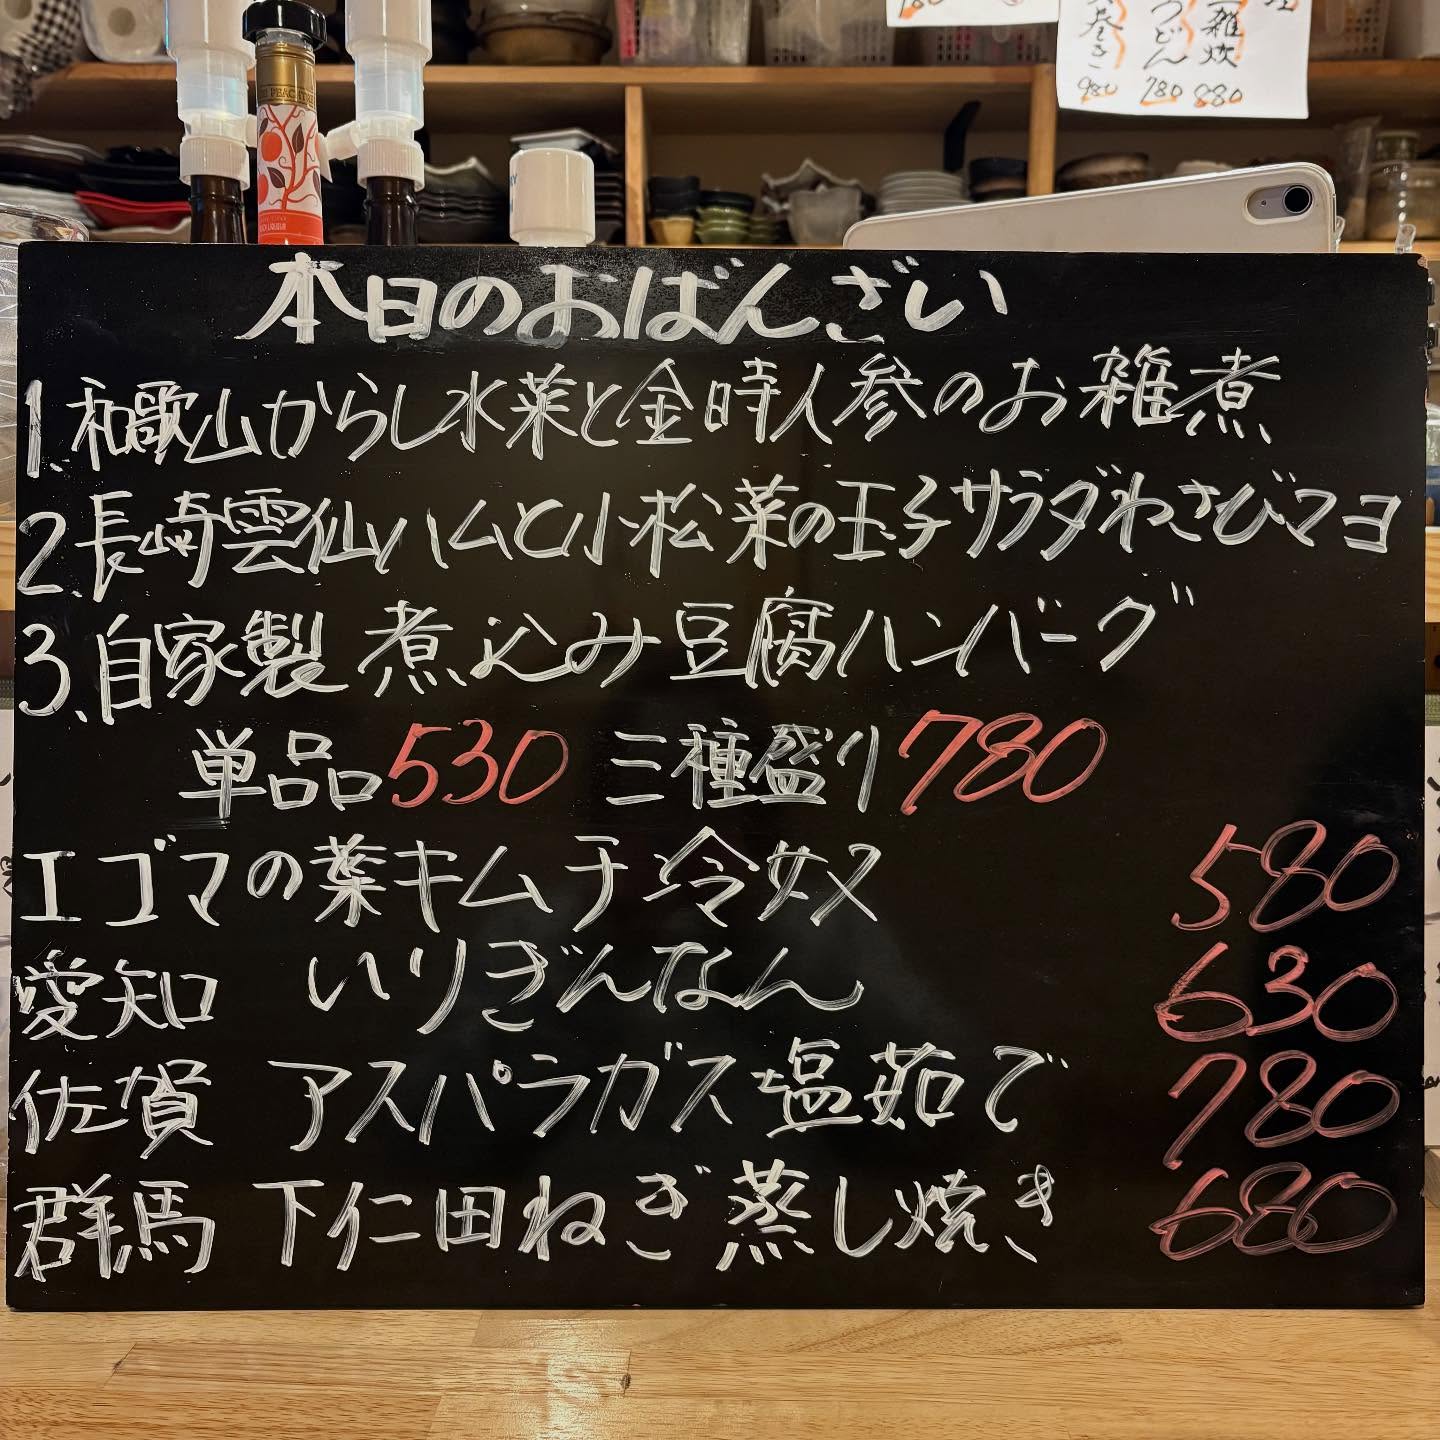 巻き つどん 雑炊
980 780 880
本日のおばんざい
1.和歌山からし水菜と金時人参のお雑煮
2.長崎雲仙ハムと小松菜の玉子サラダわさびマヨ
3.自家製 煮込み豆腐ハンバーグ
単品530 三種盛り780
エゴマの葉キムチ冷奴 580
愛知 いりぎんなん 630
佐賀 アスパラガス塩茹で 780
群馬 下仁田ねぎ蒸し焼き 680